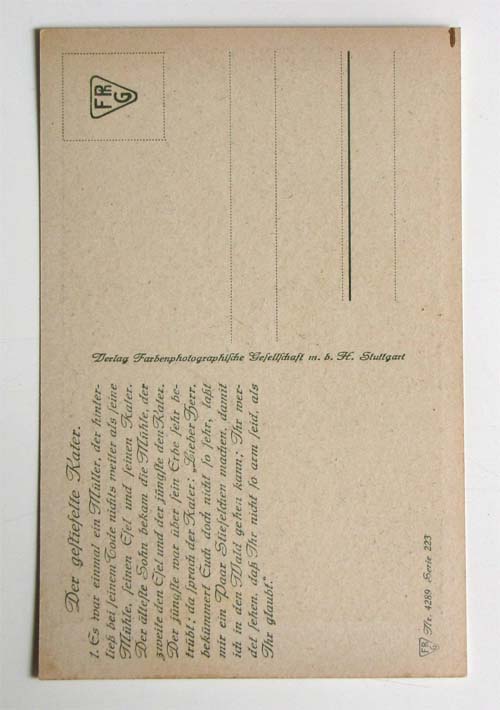 Der gestiefelte Kater.
1. Es war einmal ein Müller, der hinter-
ließ bei seinem Tode nichts weiter als seine
Mühle, seinen Esel und seinen Kater.
Der älteste Sohn bekam die Mühle, der
zweite den Esel und der jüngste den Kater.
Der jüngste war über sein Erbe sehr be-
trübt; da sprach der Kater: „Lieber Herr,
bekümmert Euch doch nicht so sehr, laßt
mir ein Paar Stiefelchen machen, damit
ich in den Wald gehen kann; Ihr wer-
det sehen, daß Ihr nicht so arm seid, als
Ihr glaubt."
FPhG Nr. 4289 Serie 223
Verlag Farbenphotographische Gesellschaft m. b. H. Stuttgart
FPhG